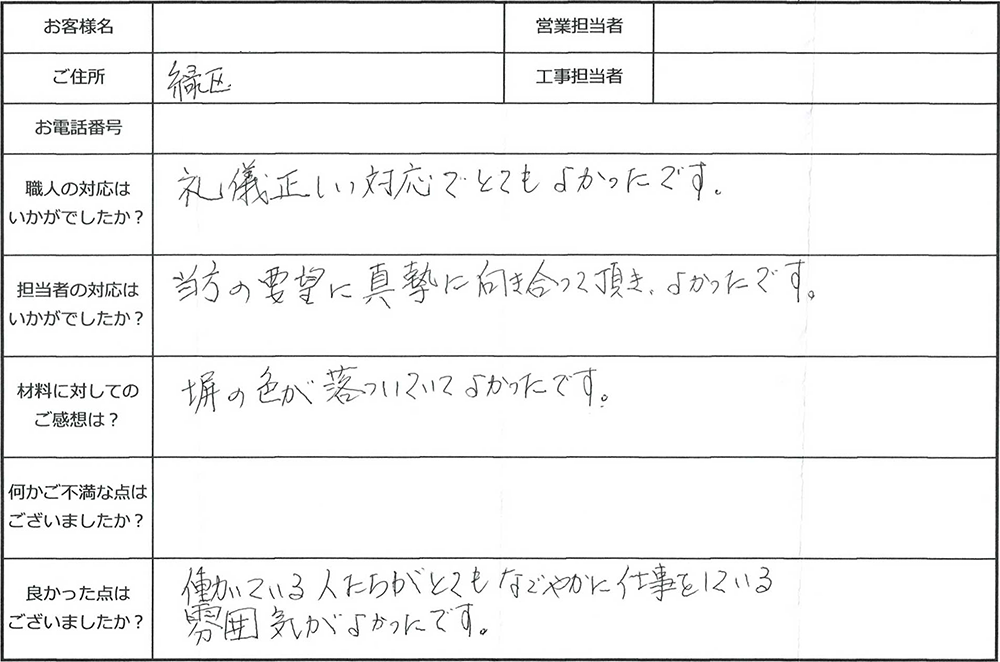 お客様名
営業担当者
ご住所
緑区
工事担当者
お電話番号
職人の対応は
いかがでしたか？
礼儀正しい対応でとてもよかったです。
担当者の対応は
いかがでしたか？
当方の要望に真摯に向き合って頂き、よかったです。
材料に対しての
ご感想は？
塀の色が落ついていてよかったです。
何かご不満な点は
ございましたか？
良かった点は
ございましたか？
働いている人たちがとてもなごやかに仕事をしている
雰囲気がよかったです。